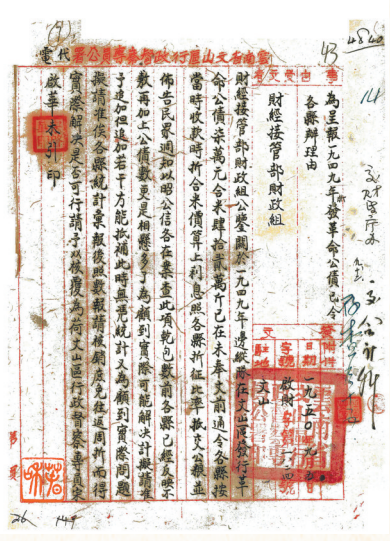 雲南省文山區行政督察專員公署代電
事由
為呈報一九四九年發革命公債已令
各縣辦理由
附件
日期 一九五〇年九月
字號 啟財字第
駐地 文山
財經接管部財政組
財經接管部財政組公鑒關於一九四九年邊縱隊在文山區發行革
命公債柒萬元合米肆拾貳萬斤已在未奉文前通令各縣按
當時收款時折合米價算上利息照各縣折征比率抵交公糧並
佈告民眾週知以昭公信各在案查此項乾包數前各縣已經反映不
敷再加上公債數更是相懸多了為顧到實際可能解決計擬請准
予追加但追加若干方能抵補此時無憑統計又為顧到實際問題
擬請准俟各縣統計彙報後照數報請核銷庶免往返周折而得
實際解決是否可行請予以核復為何文山區行政督察專員宋
啟華未引印
43
14
26
149